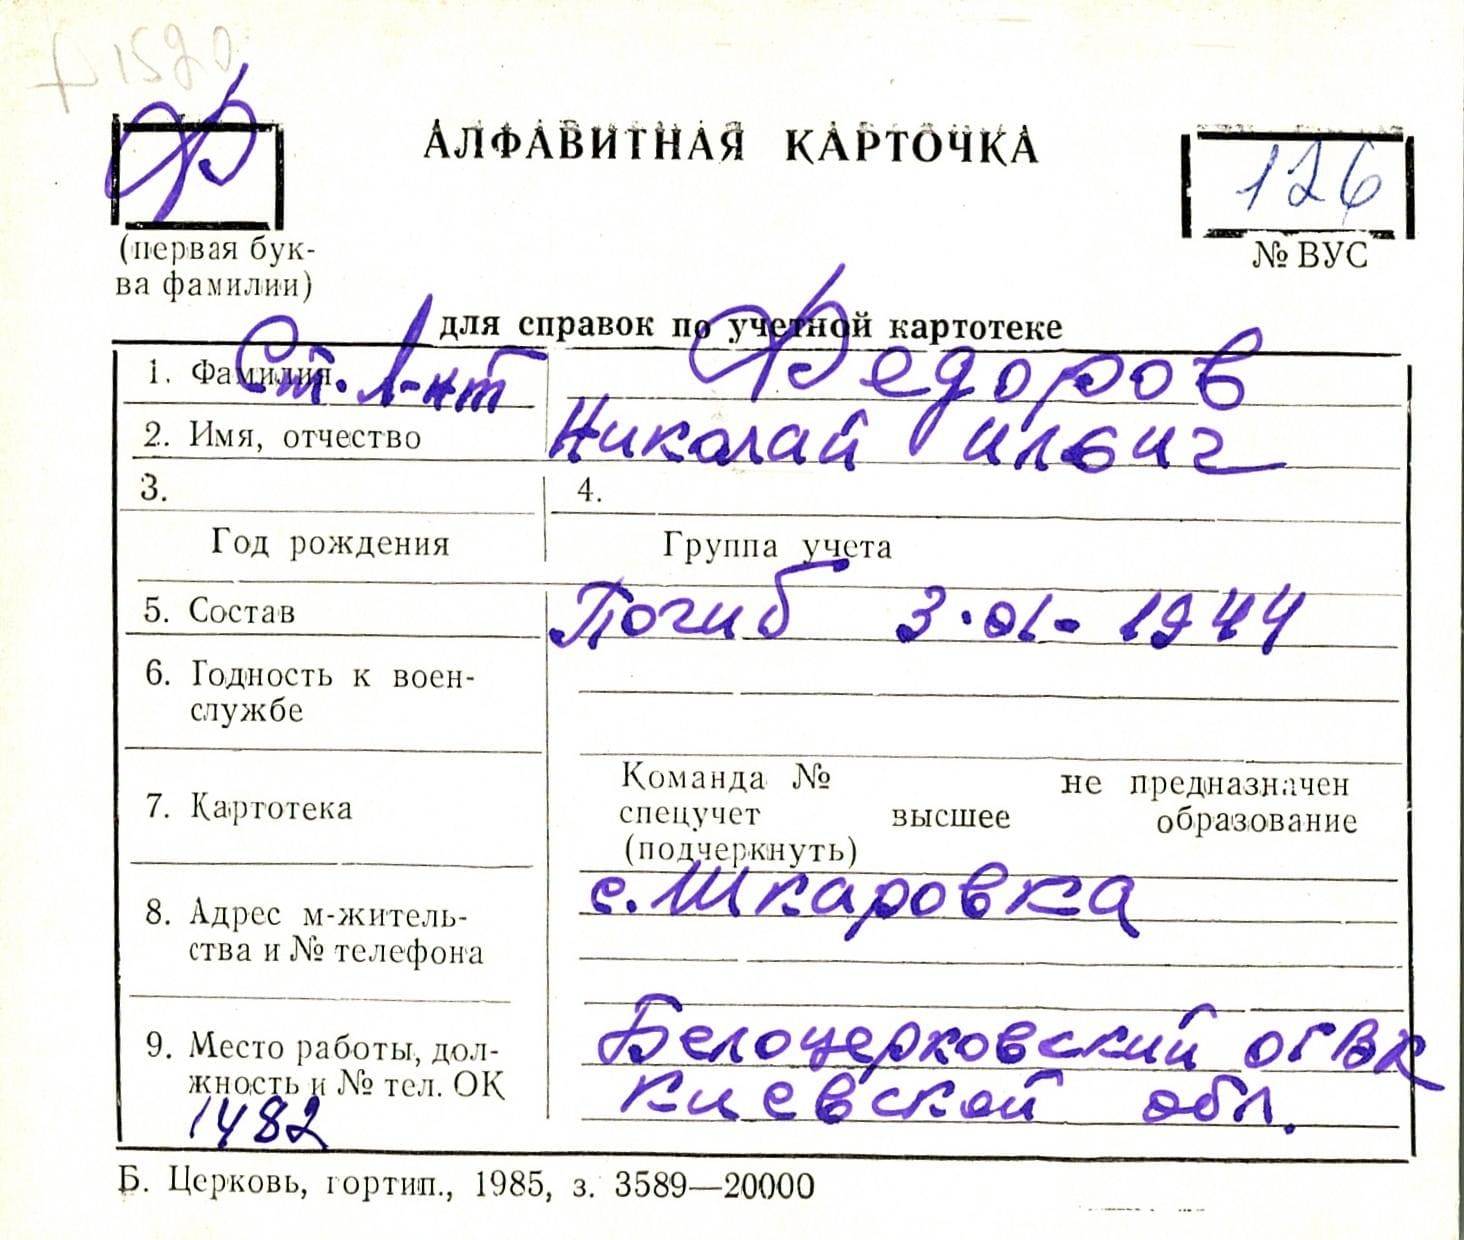 1520
Ф
АЛФАВИТНАЯ КАРТОЧКА
126
(первая бук-
ва фамилии)
№ ВУС
для справок по учетной картотеке
1. Фамилия Ст. л-нт Федоров
2. Имя, отчество Николай Ильич
3. 4.
Год рождения Группа учета
5. Состав Погиб 3.01-1944
6. Годность к воен-
службе
7. Картотека
Команда № не предназначен
спецучет высшее образование
(подчеркнуть)
8. Адрес м-житель-
ства и № телефона
с. Шкаровка
9. Место работы, дол-
жность и № тел. ОК
1482
Белоцерковский ОГВК
Киевской обл.
Б. Церковь, гортип., 1985, з. 3589—20000